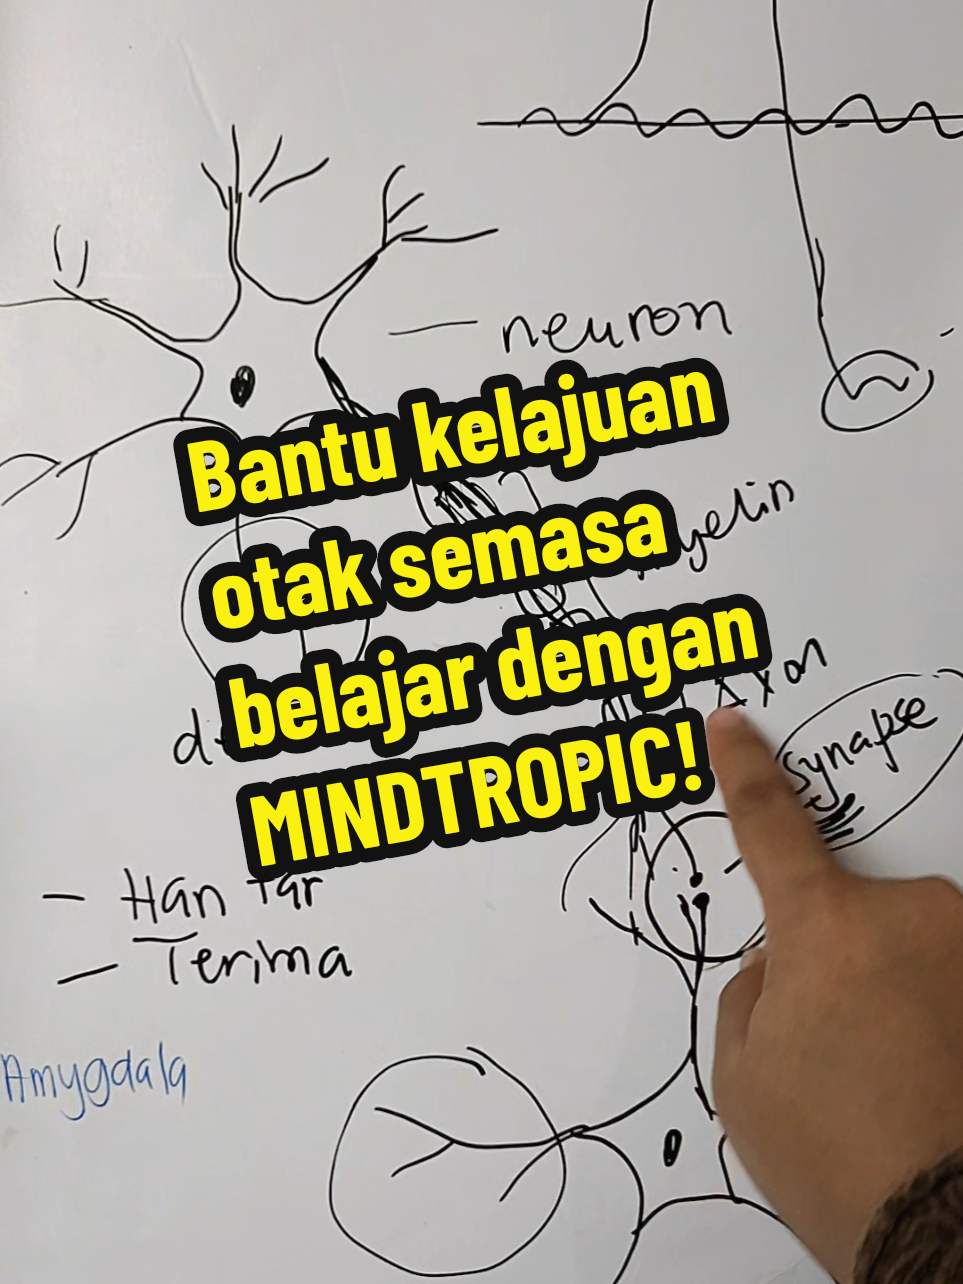 neuron
Bantu kelajuan
otak semasa
belajar dengan
MINDTROPIC!
yelin
Axon
Synapse
- Han tar
- Terima
Amygdala